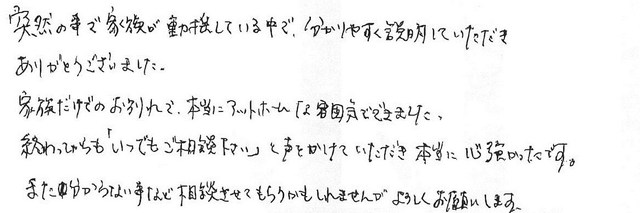 突然の事で家族が動揺している中で、分かりやすく説明していただき
ありがとうございました。
家族だけでのお別れで、本当にアットホームな雰囲気でできました。
終わってからも「いつでもご相談下さい」と声をかけていただき本当に心強かったです。
また分からない事など相談させてもらうかもしれませんがよろしくお願いします。